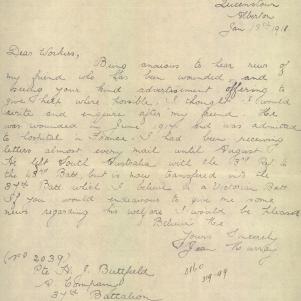 Queenstown
Alberton
Jan 19th 1918
Dear Workers,
Being anxious to hear news of
my friend who has been wounded and
seeing your kind advertisement offering to
give help where possible, I thought I would
write and enquire after my friend. He
was wounded in June 1917 and was admitted
to hospital in France & I had been receiving
letters almost every mail until August
He left South Australia with the Rgt to
the 43rd Batt, but is now transfered into the
37th Batt which I believe is a Victorian Batt
If you would endeavour to give me some
news regarding his welfare I would be pleased
I Believe Me
Yours Sincerely
Jean Murray
(No 2039)
Pte H. J. Buttfield
A Company
37th Battalion